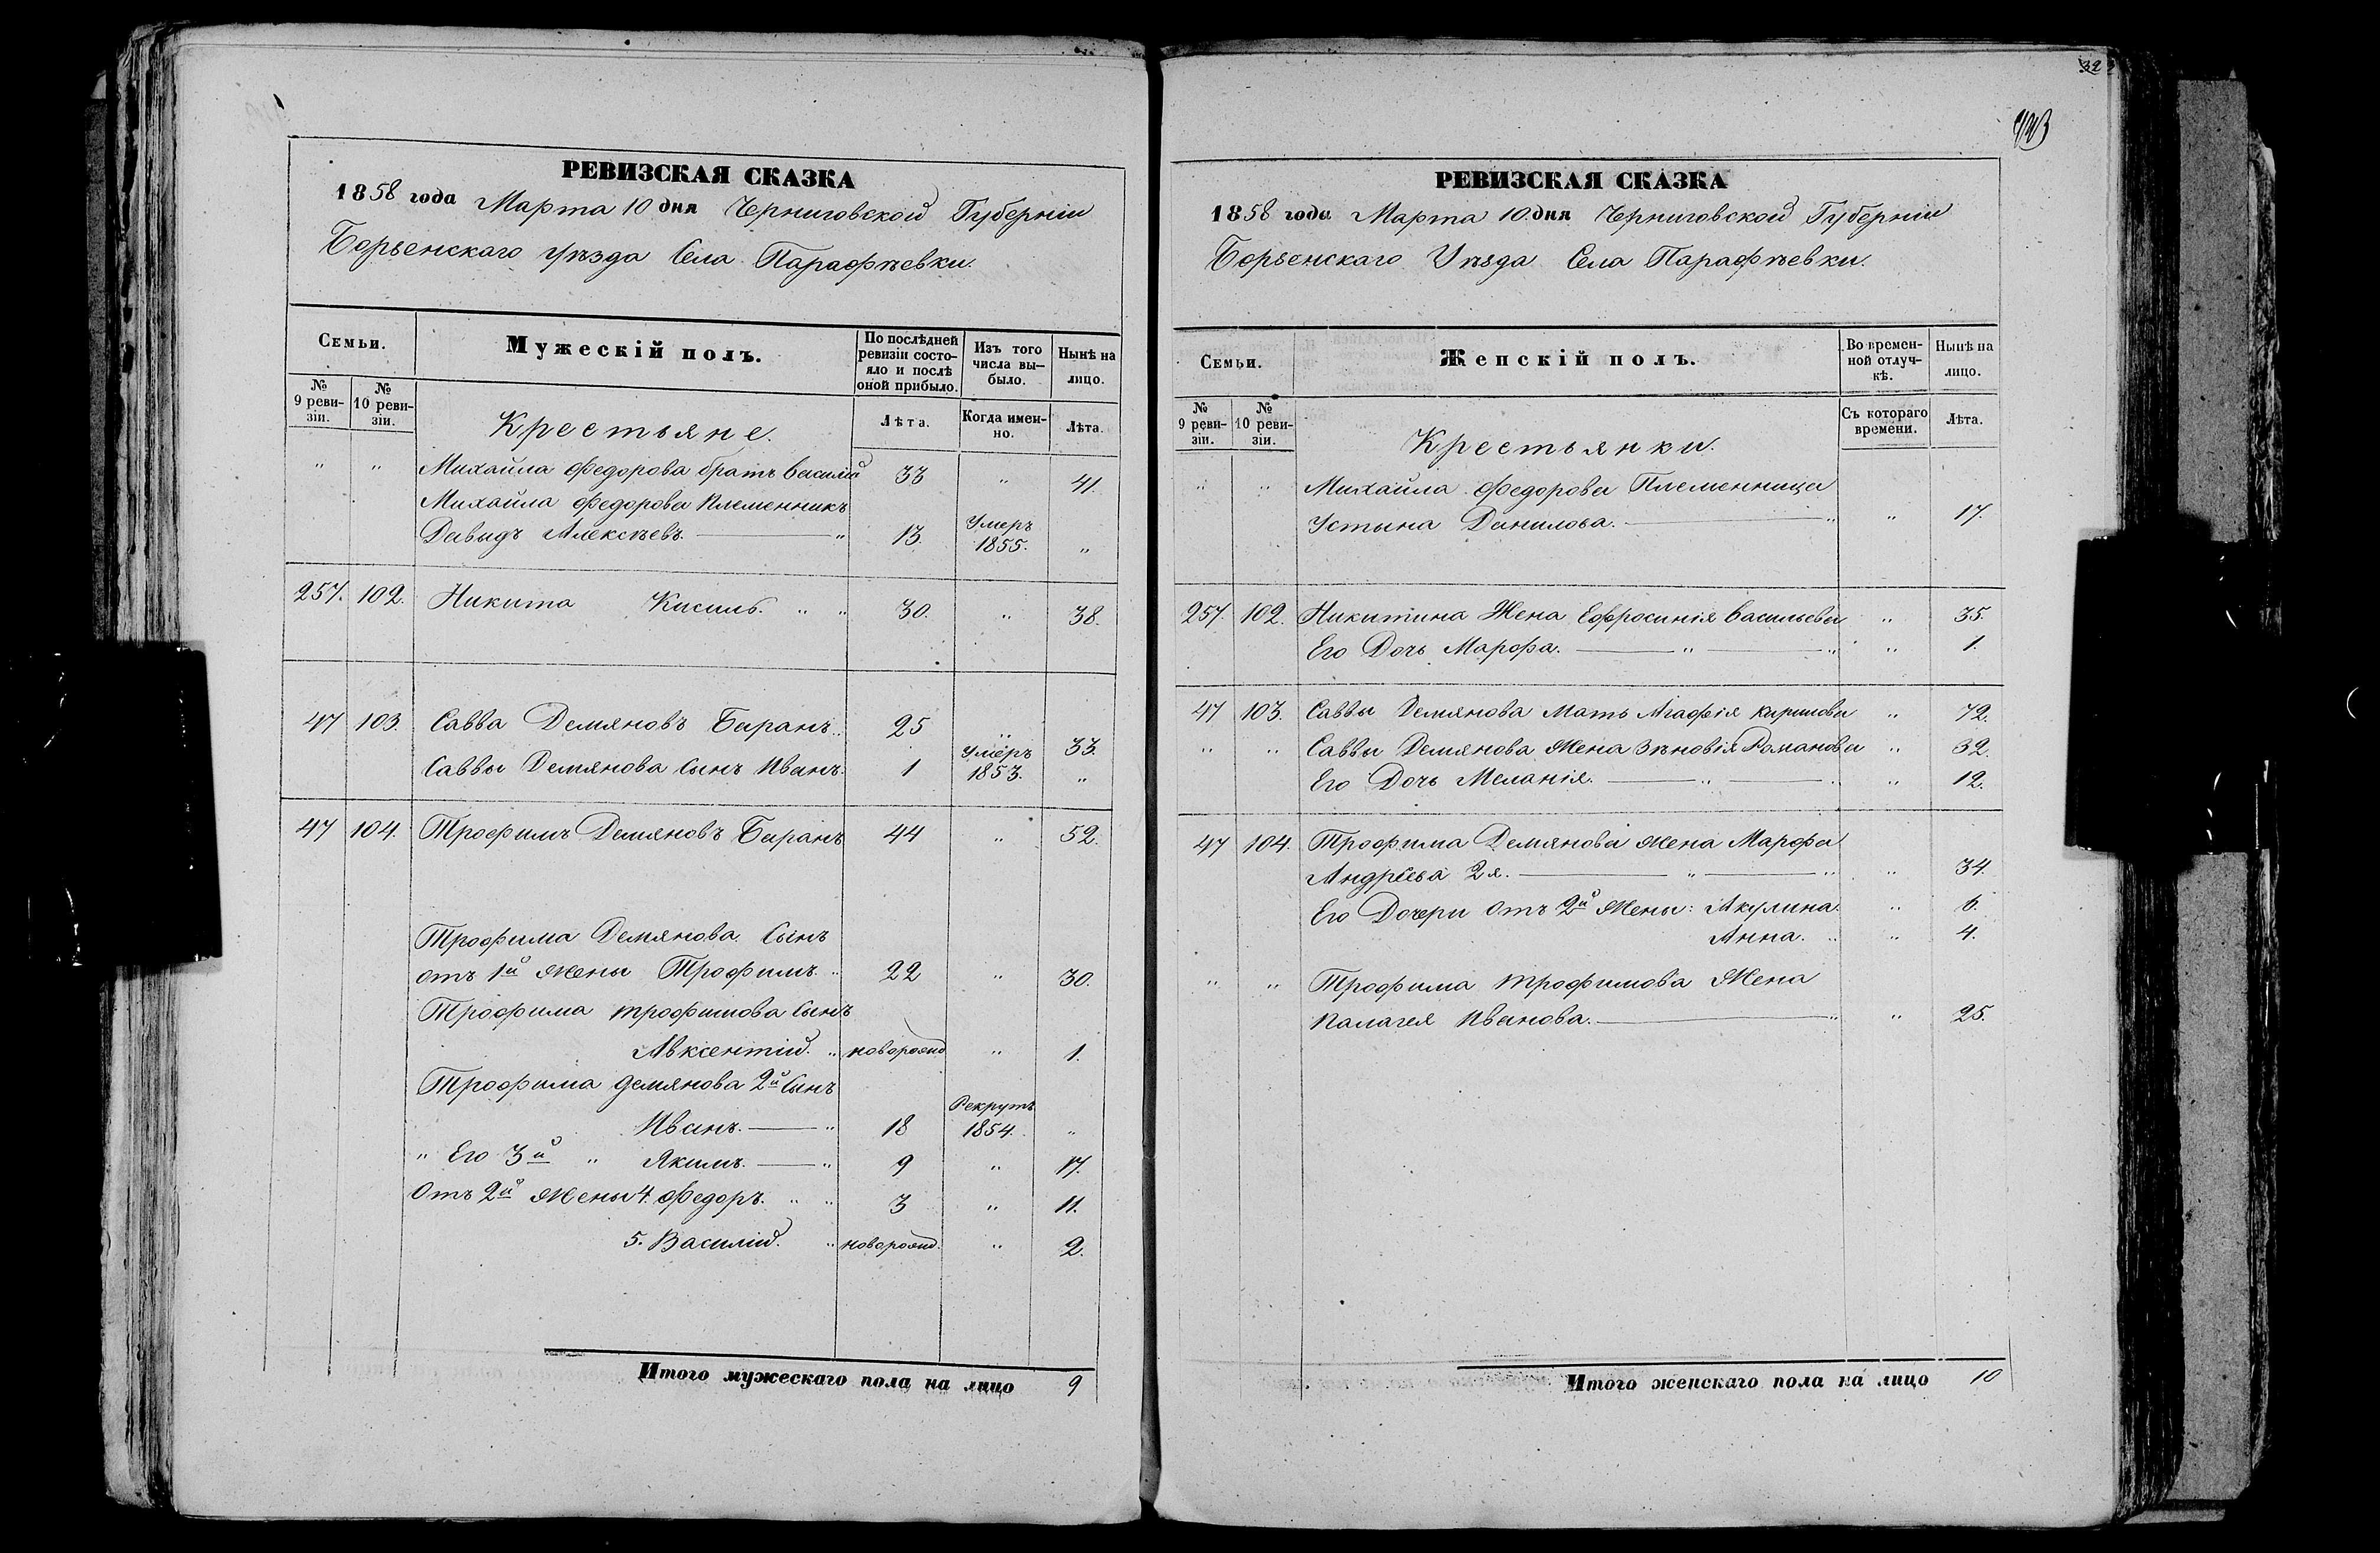 РЕВИЗСКАЯ СКАЗКА
1858 года Марта 10 дня Черниговской Губерніи
Борзенскаго Уѣзда Села Парафѣевки.
Семьи.
Мужескій полъ.
По послѣдней ревизіи состояло и послѣ оной прибыло.
Изъ того числа вы-было.
Нынѣ на лицо.
№ 9 реви-зіи.
№ 10 реви-зіи.
Крестьяне.
Лѣта.
Когда имен-но.
Лѣта.
" " Михайла Федорова братъ Василій 33 " 41.
Михайла Федорова племенникъ
Давыдъ Алексѣевъ. " 13. Умеръ 1855. "
257. 102. Никита Кисиль. " " 30. " 38.
47 103. Савва Демяновъ Баранъ. " 25 " 33.
Саввы Демянова Сынъ Иванъ. 1 Умеръ 1853. "
47 104. Трофимъ Демяновъ Баранъ 44 " 52.
Трофима Демянова Сынъ
отъ 1й Жены Трофимъ. " 22 " 30.
Трофима Трофимова Сынъ
Авксентій. " новорожд " 1.
Трофима Демянова 2й Сынъ
Иванъ. " 18 Рекрутъ 1854. "
" Его 3й " Якимъ. " 9 " 17.
Отъ 2й Жены 4. Федоръ. " " 3 " 11.
5. Василій. " новорожд. " 2.
Итого мужескаго пола на лицо 9
32
РЕВИЗСКАЯ СКАЗКА
1858 года Марта 10 дня Черниговской Губерніи
Борзенскаго Уѣзда Села Парафѣевки.
Семьи.
Женскій полъ.
Во времен-ной отлуч-кѣ.
Нынѣ на лицо.
№ 9 реви-зіи.
№ 10 реви-зіи.
Крестьянки.
Съ котораго времени.
Лѣта.
" " Михайла Федорова Племенница
Устина Данилова. " " 17.
257. 102. Никитина Жена Ефросинія Васильева " 35.
Его Дочь Марфа. " " " 1.
47 103. Саввы Демянова Мать Агафія Кирилова " 72.
" " Саввы Демянова Жена Зѣновія Романова " 32.
Его Дочь Меланія. " " " 12.
47 104. Трофима Демянова Жена Марфа
Андрѣева 2я. " " " 34.
Его Дочери отъ 2й Жены: Акулина. " 6.
Анна. " " 4.
" " Трофима Трофимова Жена
Палагея Иванова. " " 25.
Итого женскаго пола на лицо 10